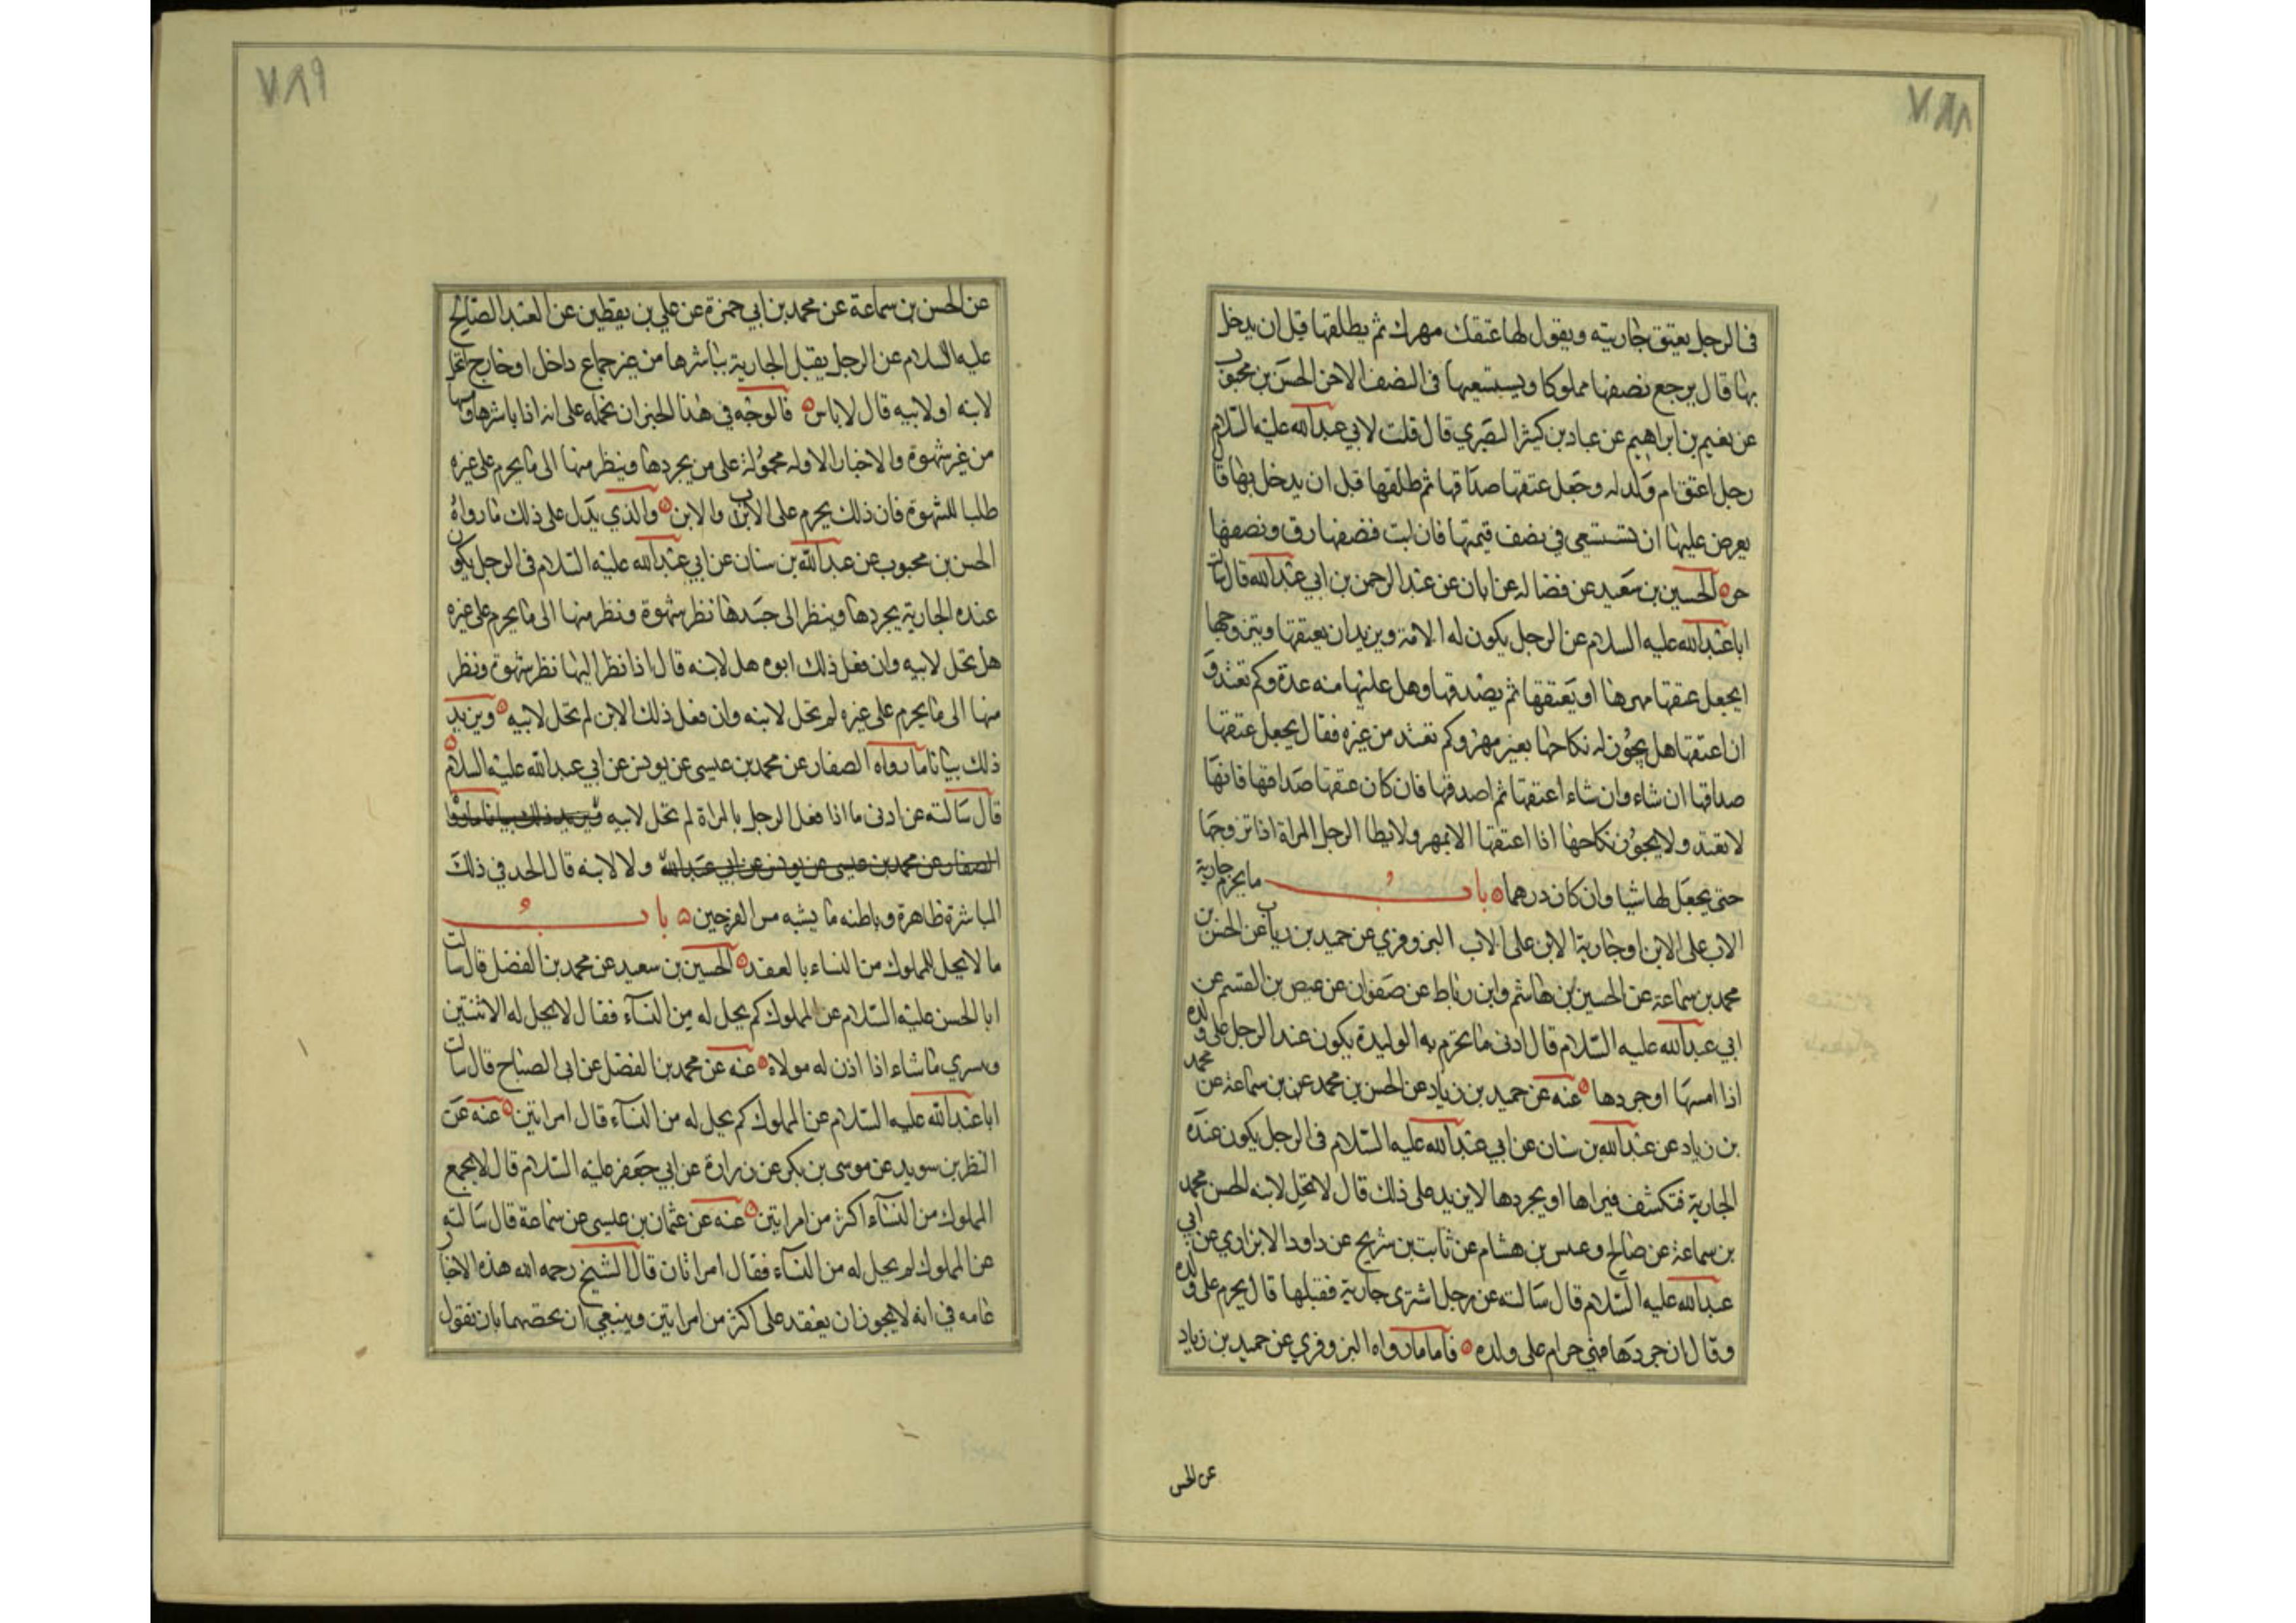 ٧٨٨
في الرجل يعتق جاريته ويقول لها عتقك مهرك ثم يطلقها قبل ان يدخل
بها قال يرجع نصفها مملوكا ويستسعيها في النصف الاخر الحسن بن محبوب
عن نعيم بن ابراهيم عن عباد بن كثير البصري قال قلت لابي عبدالله عليه السلام
رجل اعتق ام ولد له وجعل عتقها صداقها ثم طلقها قبل ان يدخل بها قال
يعرض عليها ان تستسعى في نصف قيمتها فان ابت فنصفها رق ونصفها
حر الحسين بن سعيد عن فضاله عن ابان عن عبد الرحمن بن ابي عبدالله قال سالت
ابا عبدالله عليه السلام عن الرجل يكون له الامة ويريد ان يعتقها ويتزوجها
ايجعل عتقها مهرها او يعتقها ثم يصدقها وهل عليها منه عدة وكم تعتد و
ان اعتقها هل يجوز له نكاحها بغير مهر وكم تعتد من غيره فقال يجعل عتقها
صداقها ان شاء وان شاء اعتقها ثم اصدقها فان كان عتقها صداقها فانها
لا تعتد ولا يجوز نكاحها اذا اعتقها الا بمهر ولا يطا الرجل المراة اذا تزوجها
حتى يجعل لها شيا وان كان درهما باب ما يحرم جارية
الاب على الابن او جارية الابن على الاب البزوفري عن حميد بن زياد عن الحسن بن
محمد بن سماعة عن الحسين بن هاشم وابن رباط عن صفوان عن عيص بن القسم عن
ابي عبدالله عليه السلام قال ادنى ما تحرم به الوليدة يكون عند الرجل على ولده
اذا امسها او جردها عنه عن حميد بن زياد عن الحسن بن محمد عن بن سماعة عن محمد
بن زياد عن عبدالله بن سنان عن ابي عبدالله عليه السلام في الرجل يكون عنده
الجارية فتكشف فيراها او يجردها لا يزيد على ذلك قال لا تحل لابنه الحسن محمد
بن سماعة عن صالح وعبس بن هشام عن ثابت بن شريح عن داود الابزاري عن ابي
عبدالله عليه السلام قال سالته عن رجل اشترى جارية فقبلها قال يحرم على ولده
وقال ان جردها فهي حرام على ولده فاما ما رواه البزوفري عن حميد بن زياد
عن الحسن
٧٨٩
عن الحسن بن سماعة عن محمد بن ابي حمزة عن علي بن يقطين عن العبد الصالح
عليه السلام عن الرجل يقبل الجارية يباشرها من غير جماع داخل او خارج اتحل
لابنه او لابيه قال لا باس فالوجه في هذا الخبر ان نحمله على انه اذا باشرها ومسها
من غير شهوة والاخبار الاوله محمولة على من يجردها وينظر منها الى ما يحرم على غيره
طلبا للشهوة فان ذلك يحرم على الاب والابن والذي يدل على ذلك ما رواه
الحسن بن محبوب عن عبدالله بن سنان عن ابي عبدالله عليه السلام في الرجل يكون
عنده الجارية يجردها وينظر الى جسدها نظر شهوة ونظر منها الى ما يحرم على غيره
هل تحل لابيه وان فعل ذلك ابوه هل لابنه قال اذا نظر اليها نظر شهوة ونظر
منها الى ما يحرم على غيره لم تحل لابنه وان فعل ذلك الابن لم تحل لابيه ويزيد
ذلك بيانا ما رواه الصفار عن محمد بن عيسى عن يونس عن ابي عبدالله عليه السلام
قال سالته عن ادنى ما اذا فعل الرجل بالمراة لم تحل لابيه ويزيد ذلك بيانا ما رواه
الصفار عن محمد بن عيسى عن يونس عن ابي عبدالله ولا لابنه قال الحد في ذلك
المباشرة ظاهرة وباطنه ما يشبه مس الفرجين باب
ما لا يحل للمملوك من النساء بالعقد الحسين بن سعيد عن محمد بن الفضل قال سالت
ابا الحسن عليه السلام عن المملوك كم يحل له من النسآء فقال لا يحل له الا ثنتين
ويسري ما شاء اذا اذن له مولاه عنه عن محمد بن الفضل عن ابى الصباح قال سالت
ابا عبدالله عليه السلام عن المملوك كم يحل له من النسآء قال امراتين عنه عن
النظر بن سويد عن موسى بن بكر عن زرارة عن ابي جعفر عليه السلام قال لا يجمع
المملوك من النسآء اكثر من امراتين عنه عن عثمان بن عيسى عن سماعة قال سالته
عن المملوك لم يحل له من النسآء فقال امراتان قال الشيخ رحمه الله هذه الاخبار
عامه في انه لا يجوز ان يعقد على اكثر من امراتين وينبغي ان نخصهما بان نقول